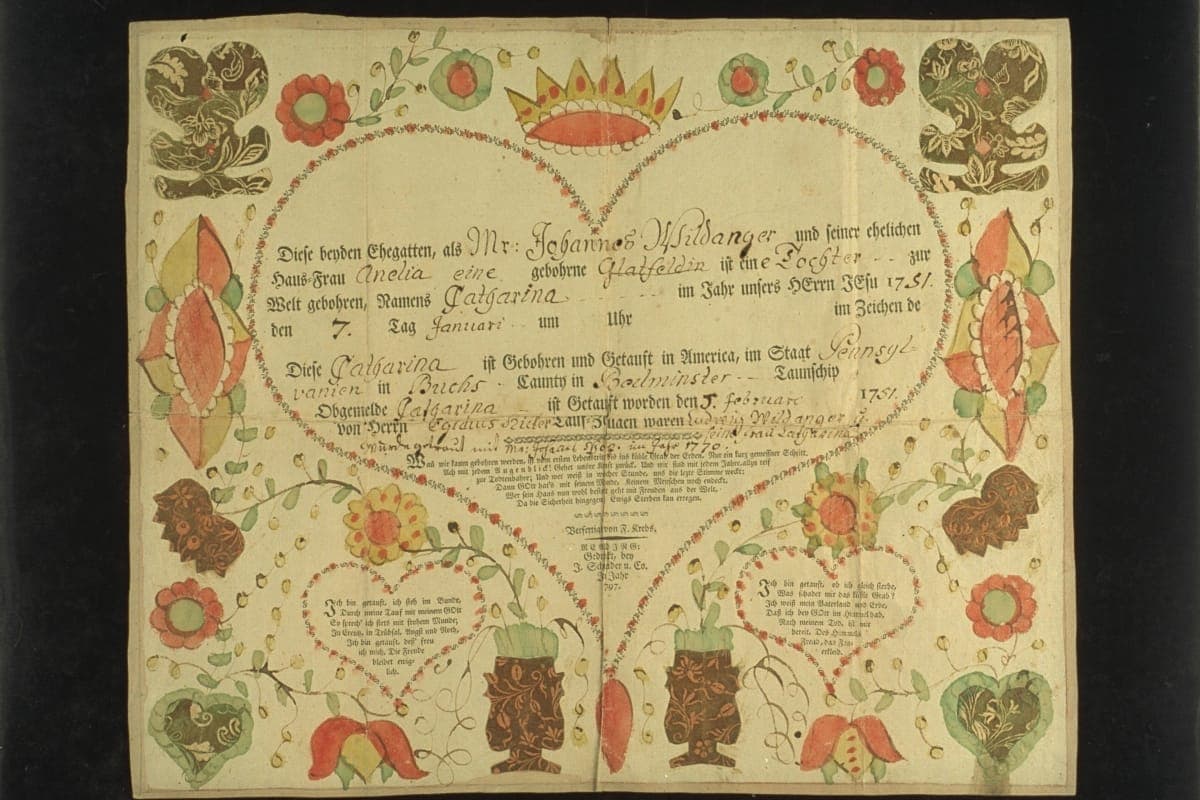 Diese beyden Ehegatten, als Mr: Johannes Wildanger und seiner ehelichen
Haus-Frau Anelia eine gebohrne Glatfeldin ist eine Tochter zur
Welt gebohren, Namens Catgarina im Jahr unsers HErrn JEsu 1751.
den 7. Tag Januari um Uhr im Zeichen de
Diese Catgarina ist Gebohren und Getauft in America, im Staat Pennsyl-
vanien in Buchs Caunty in Bedminster Taunschip
Obgemelde Catgarina ist Getauft worden den 5. februari 1751.
von Herrn Egidius Tauf-Zeugen waren Ludewig Wildanger u.
sein frau Catgarina
wurde getraut mit im Jahr 1770.
Wann wir kaum gebohren werden, ist vom ersten Lebenstritt bis ins kühle Grab der Erden, Nur ein kurz gemessner Schritt.
Ach mit jedem Augenblick! Gehet unsre Kraft zurück, Und wir sind mit jedem Jahre, allzu reif
zur Todtenbahre; Und wer weiß in welcher Stunde, uns die lezte Stimme weckt;
Dann GOtt hat's mit seinem Munde, Keinem Menschen noch endeckt.
Wer sein Haus nun wohl bestellt geht mit Freuden aus der Welt,
Da die Sicherheit hingegen, Ewigs Sterben kan erregen.
Verfertigt von F. Krebs.
READING:
Gedruckt, bey
J. Schneider u. Co.
Im Jahr
797.
Ich bin getauft, ich steh im Bunde,
Durch meine Tauf mit meinem GOtt
So sprech' ich stets mit frohem Munde,
In Creutz, in Trübsal, Angst und Noth,
Ich bin getauft, deß' freu
ich mich, Die Freude
bleibet ewig-
lich.
Ich bin getauft, ob ich gleich sterbe,
Was schadet mir das kühle Grab?
Ich weiß mein Vaterland und Erbe,
Daß ich bey GOtt im Himmel hab,
Nach meinem Tod, ist mir
bereit, Des Himmels
Freud, das Fey-
erkleid.